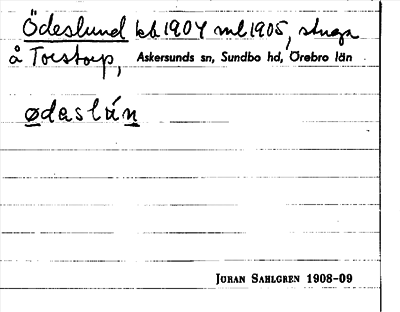 Ödeslund kb 1904 ml 1905, stuga
å Torstorp, Askersunds sn, Sundbo hd, Örebro län
ødeslún
Jöran Sahlgren 1908-09